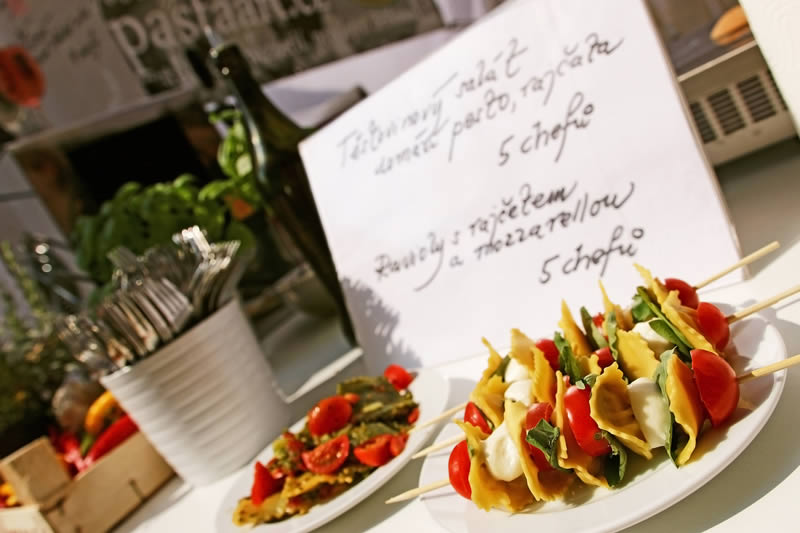 Pastaanti
Těstovinový salát
domácí pesto, rajčata
5 chefů
Ravioly s rajčetem
a mozzarellou
5 chefů